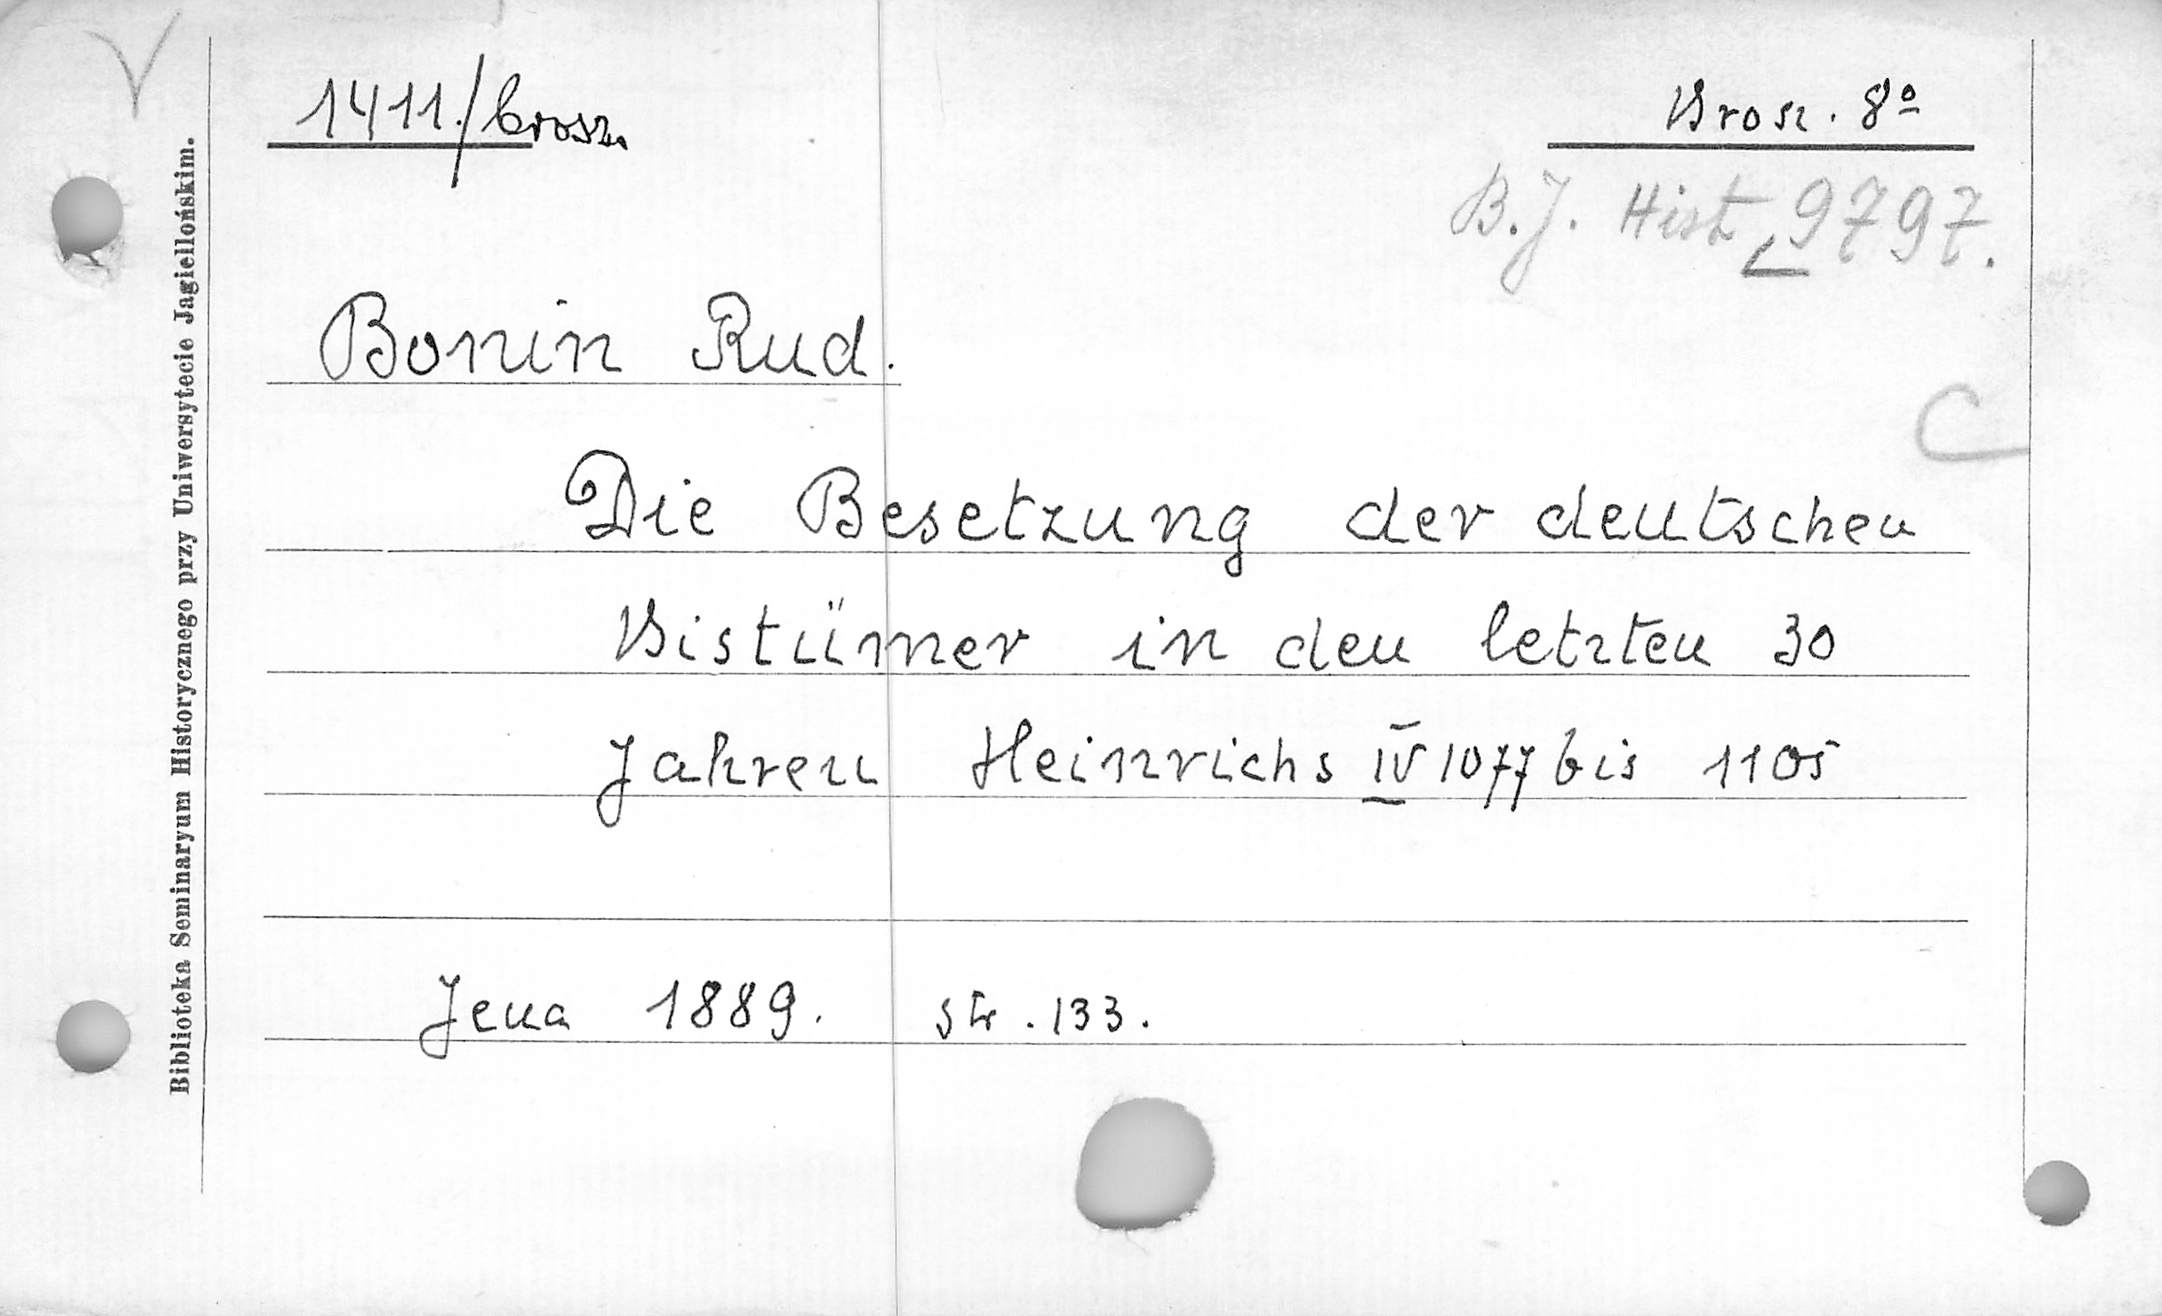 V
1411./brosz.
Brosz. 8º
B.J. Hist 9797.
Bonin Rud.
C
Die Besetzung der deutschen
Bistümer in den letzten 30
Jahren Heinrichs IV 1077 bis 1105
Jena 1889. str. 133.
Biblioteka Seminaryum Historycznego przy Uniwersytecie Jagiellońskim.